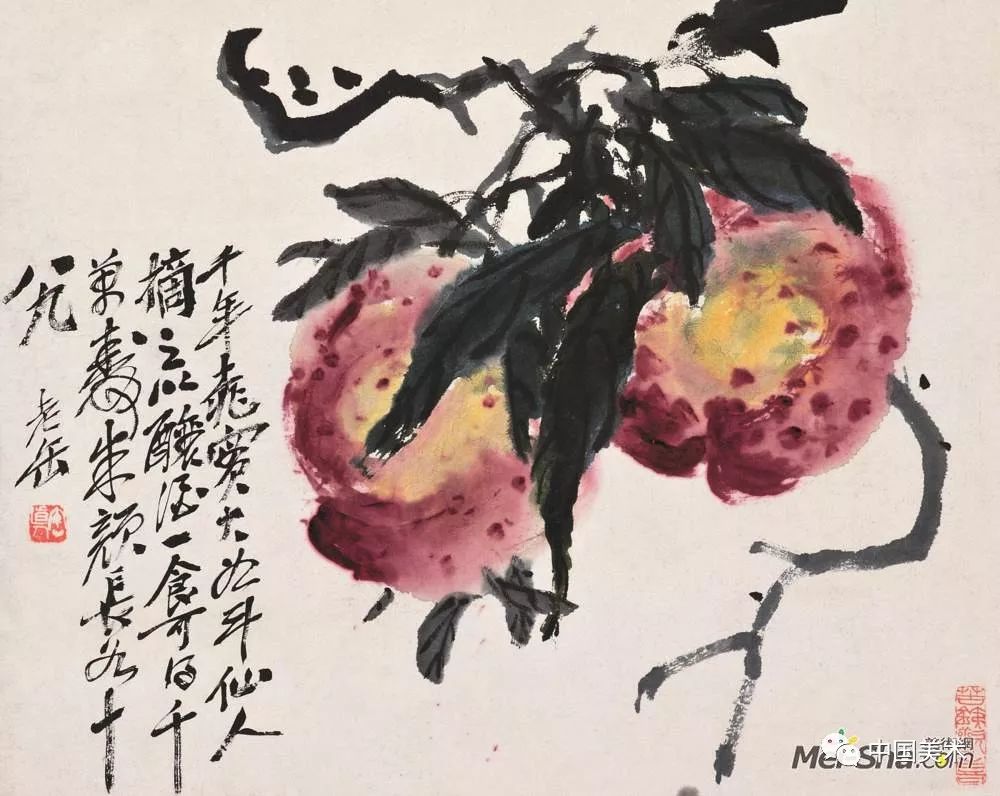 千年桃實大如斗仙人
摘之以釀酒一食可得千
萬壽朱顏長如十
八九
老缶
中国美术